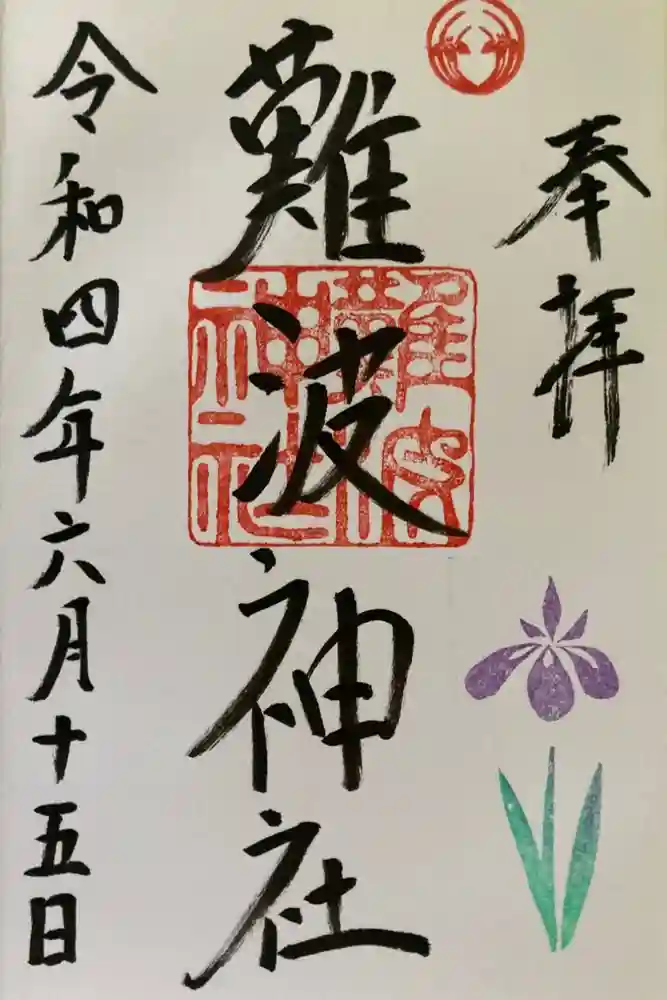 奉拝
難波神社
難波神社
令和四年六月十五日